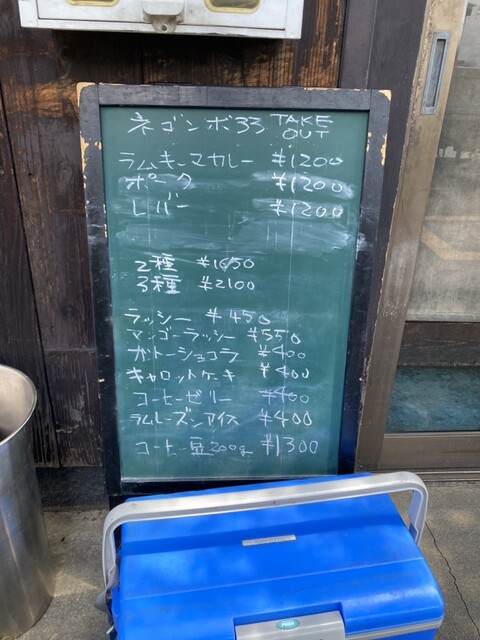 ネゴンボ33 TAKE OUT
ラムキーマカレー ¥1200
ポーク ¥1200
レバー ¥1200
2種 ¥1650
3種 ¥2100
ラッシー ¥450
マンゴーラッシー ¥550
ガトーショコラ ¥400
キャロットケーキ ¥400
コーヒーゼリー ¥400
ラムレーズンアイス ¥400
コーヒー豆200g ¥1300